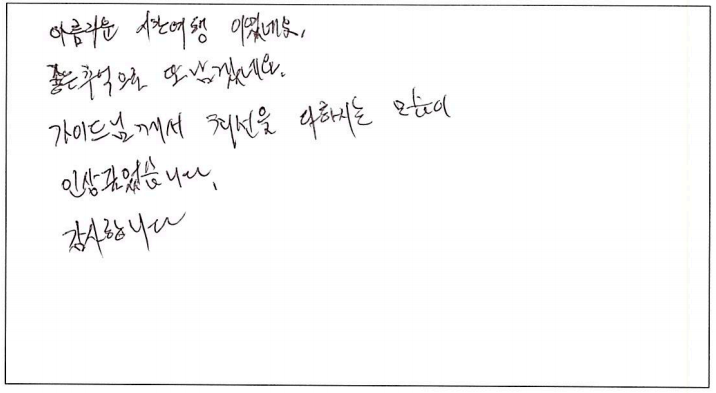 아름다운 시간여행 이었네요.
좋은추억으로 또 남겠네요.
가이드님께서 최선을 다하시는 모습이
인상깊었습니다.
감사합니다